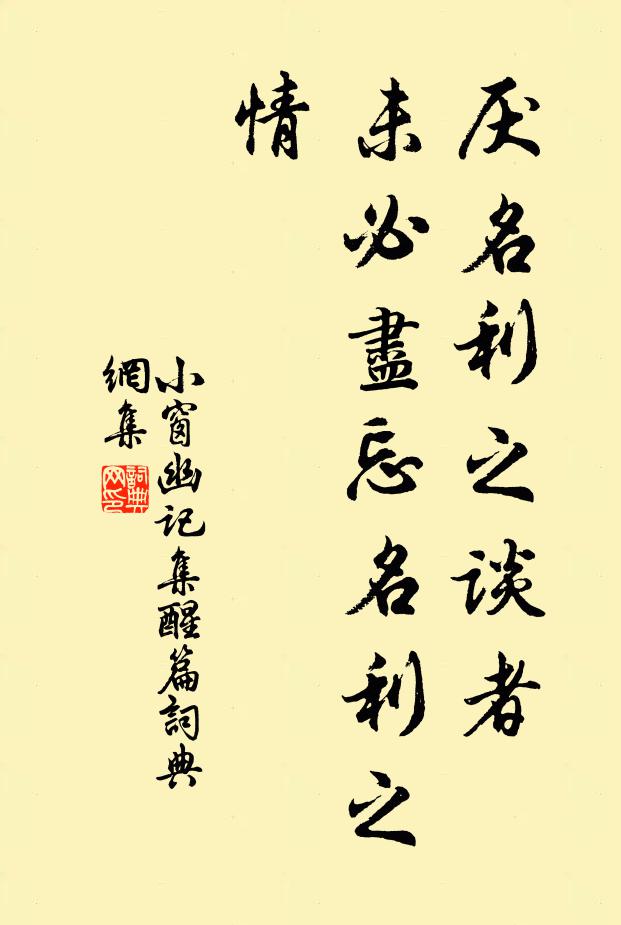 厌名利之谈者
未必盡忘名利之
情
小窗幽记集醒篇词典
網集
詞典
网印